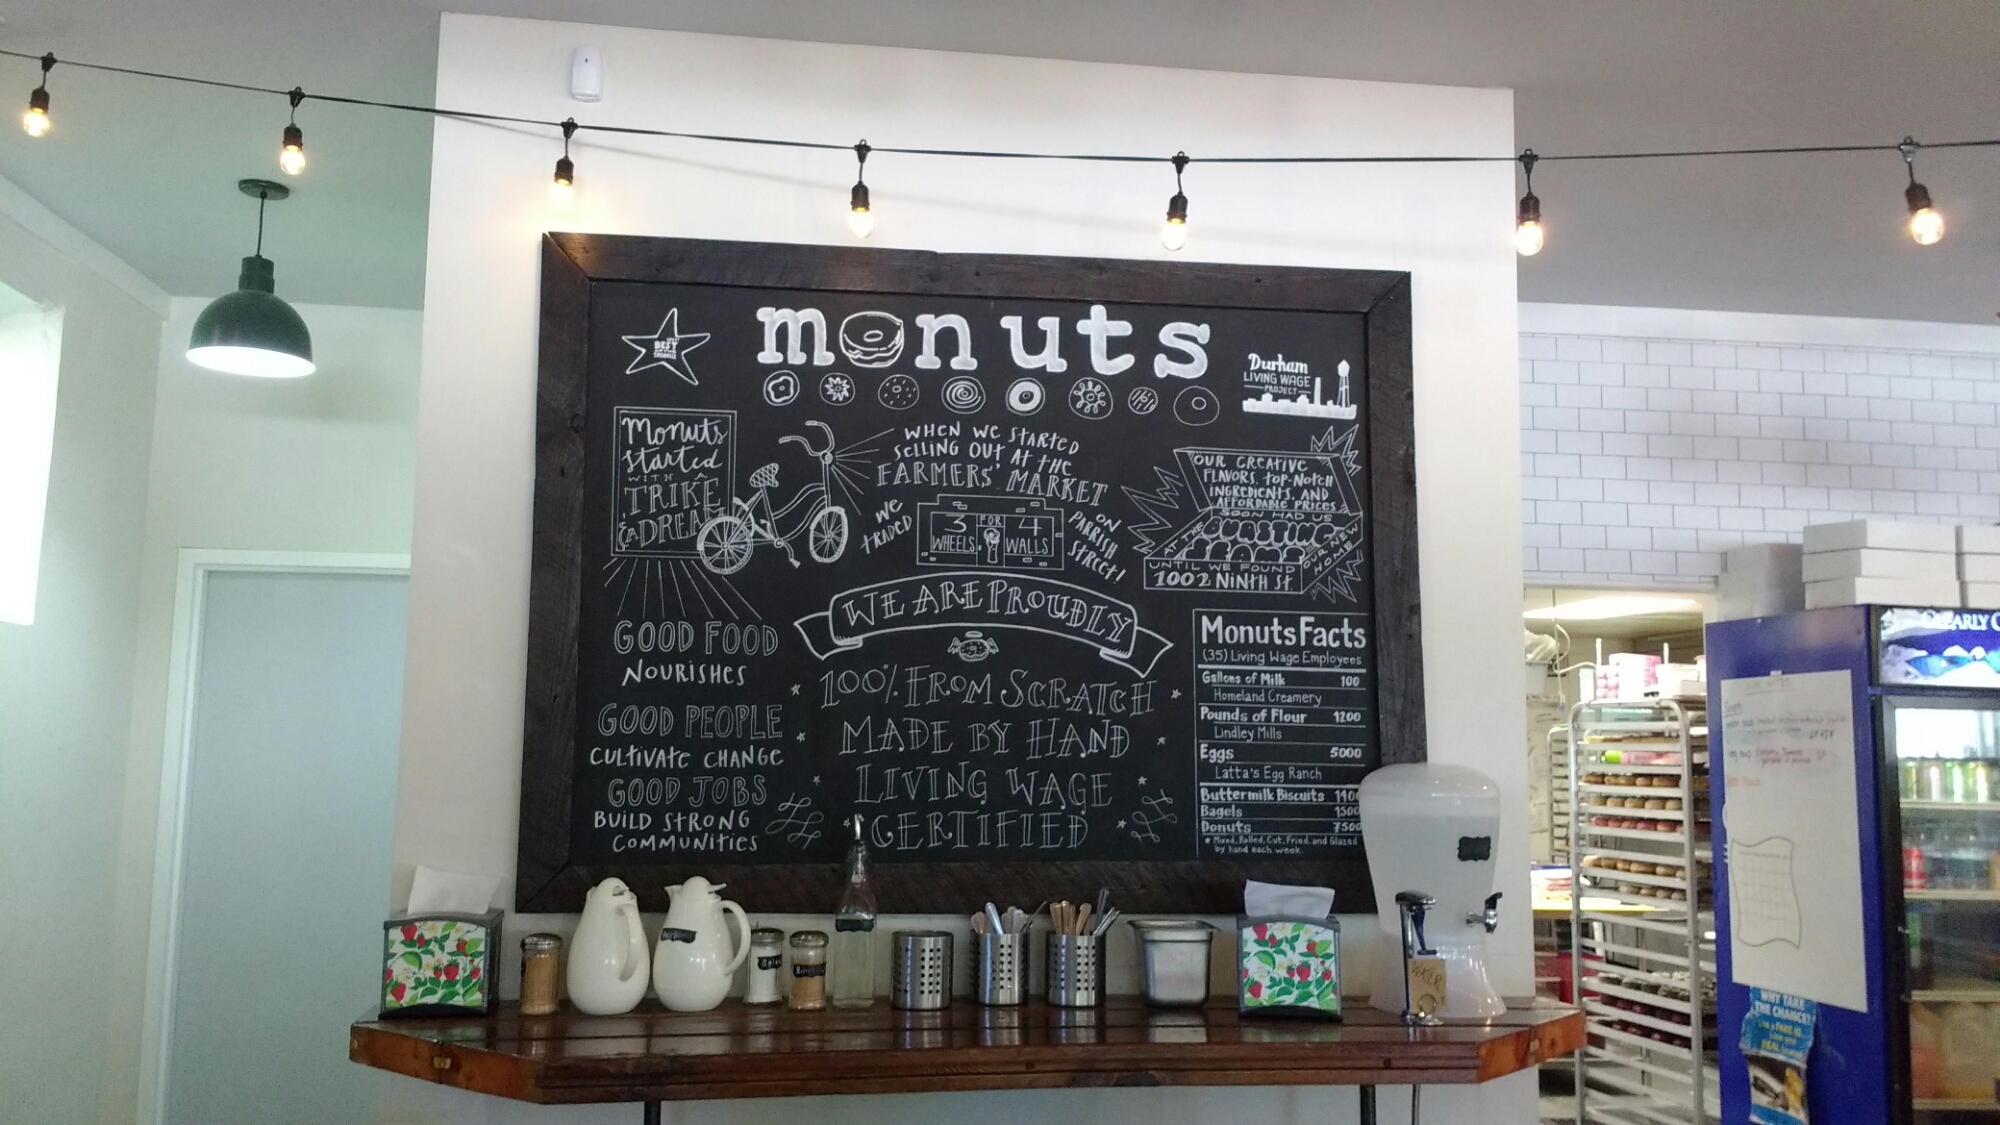 monuts
BEST
Durham
LIVING WAGE
PROJECT
Monuts
started
WITH A
TRIKE
& A DREAM
WHEN WE STARTED
SELLING OUT AT THE
FARMERS' MARKET
WE
TRADED
3 FOR 4
WHEELS WALLS
ON
PARRISH
STREET!
OUR CREATIVE
FLAVORS, TOP-NOTCH
INGREDIENTS, AND
AFFORDABLE PRICES
SOON HAD US
BURSTING
AT THE SEAMS
UNTIL WE FOUND
OUR NEW
HOME
1002 NINTH ST.
WE ARE PROUDLY
100% FROM SCRATCH
MADE BY HAND
LIVING WAGE
CERTIFIED
GOOD FOOD
NOURISHES
GOOD PEOPLE
CULTIVATE CHANGE
GOOD JOBS
BUILD STRONG
COMMUNITIES
Monuts Facts
(35) Living Wage Employees
Gallons of Milk 100
Homeland Creamery
Pounds of Flour 1200
Lindley Mills
Eggs 5000
Latta's Egg Ranch
Buttermilk Biscuits 1400
Bagels 1500
Donuts 7500
* Mixed, Rolled, Cut, Fried, and Glazed
by hand each week.
WATER
WHY TAKE
THE CHANCE?